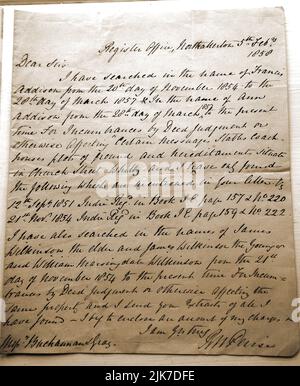 Register Office, Northallerton 5th Feby
1858
Dear Sirs
I have searched in the name of Francis
Addison from the 20th day of November 1854 to the
20th day of March 1857 & in the name of Ann
Addison from the 20th day of March 1857 to the present
time for Incumbrances by Deed Judgment or
otherwise affecting "Certain Messuages Stable Coach
houses plot of ground and hereditaments situate
in Church Street Whitby and I have only found
the following which are mentioned in your letter
12th Sept 1851 Indre Regd in Book page 157 & No 220
21st Novr 1854 Indre Regd in Book I.E. page 159 & No 222
I have also searched in the names of James
Wilkinson the elder and James Wilkinson the Younger
and William Wilkinson from the 21st
day of November 1854 to the present time for Incum-
brances by Deed Judgment or otherwise affecting the
same property and I send you Extracts of all I
have found – I beg to enclose an account of my charges
I am Yrs truly
Messrs Buchannan & Gray
alamy
Image ID: 2JK7DFE
www.alamy.com